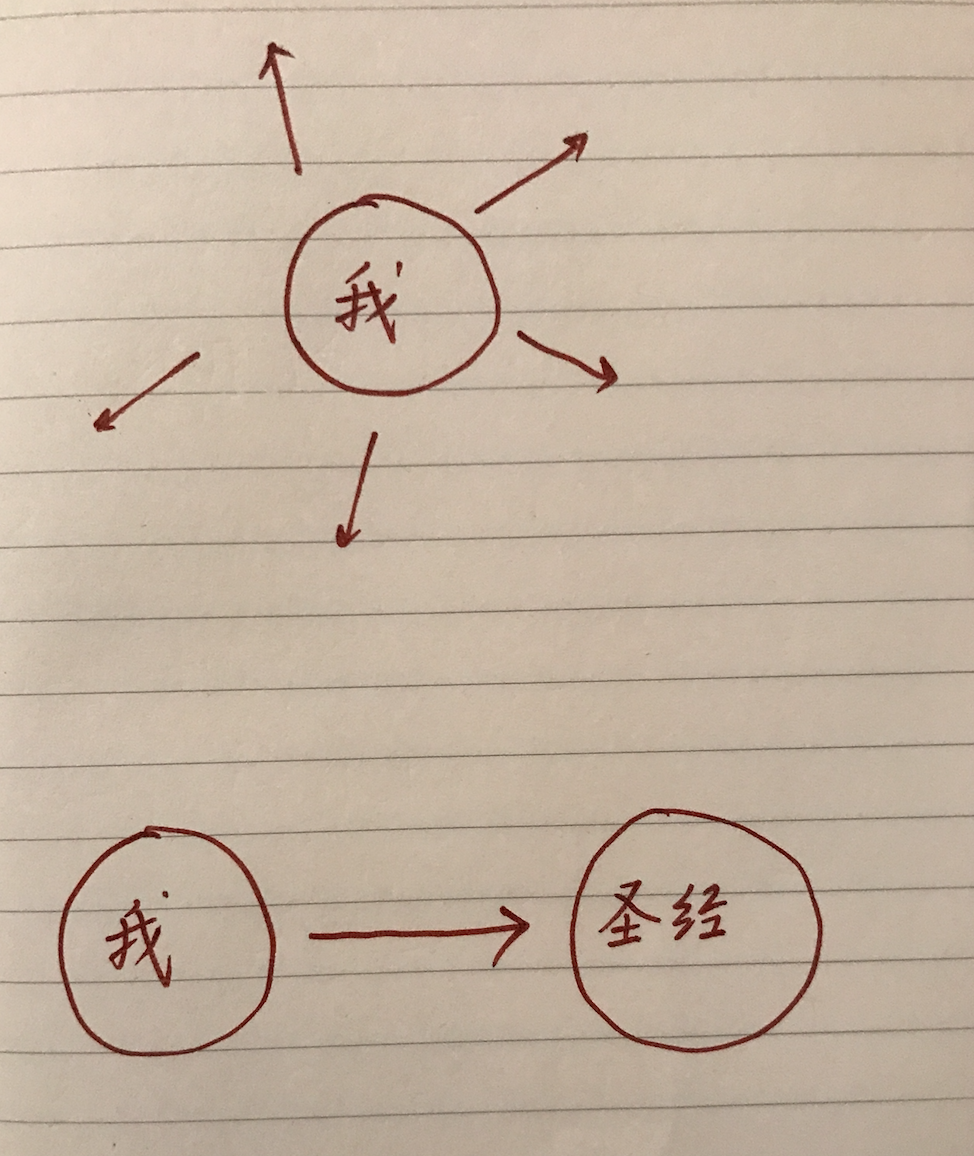 我
我 圣经